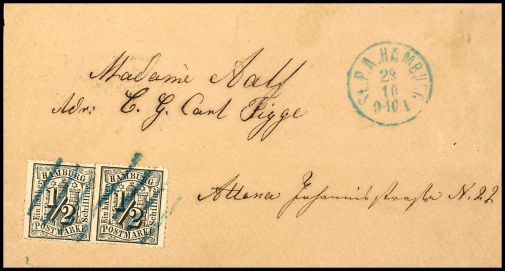 St. P. A. HAMBURG.
28
10
9-10 1
Madame Aalf
Adr: C. G. Carl Figge
Altona Johannisstraße N. 22
HAMBURG
Ein halber
1/2
Schilling
POSTMARKE
HAMBURG
Ein halber
1/2
Schilling
POSTMARKE